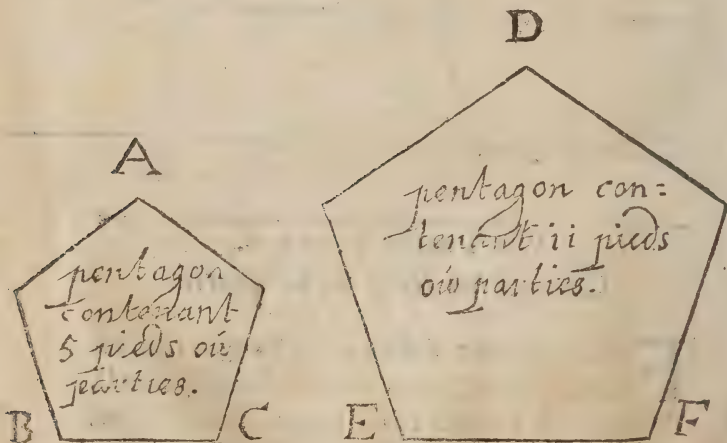 A
pentagon
contenant
5 pieds ou
parties.
B
C
D
pentagon con=
tenant ii pieds
ou parties.
E
F